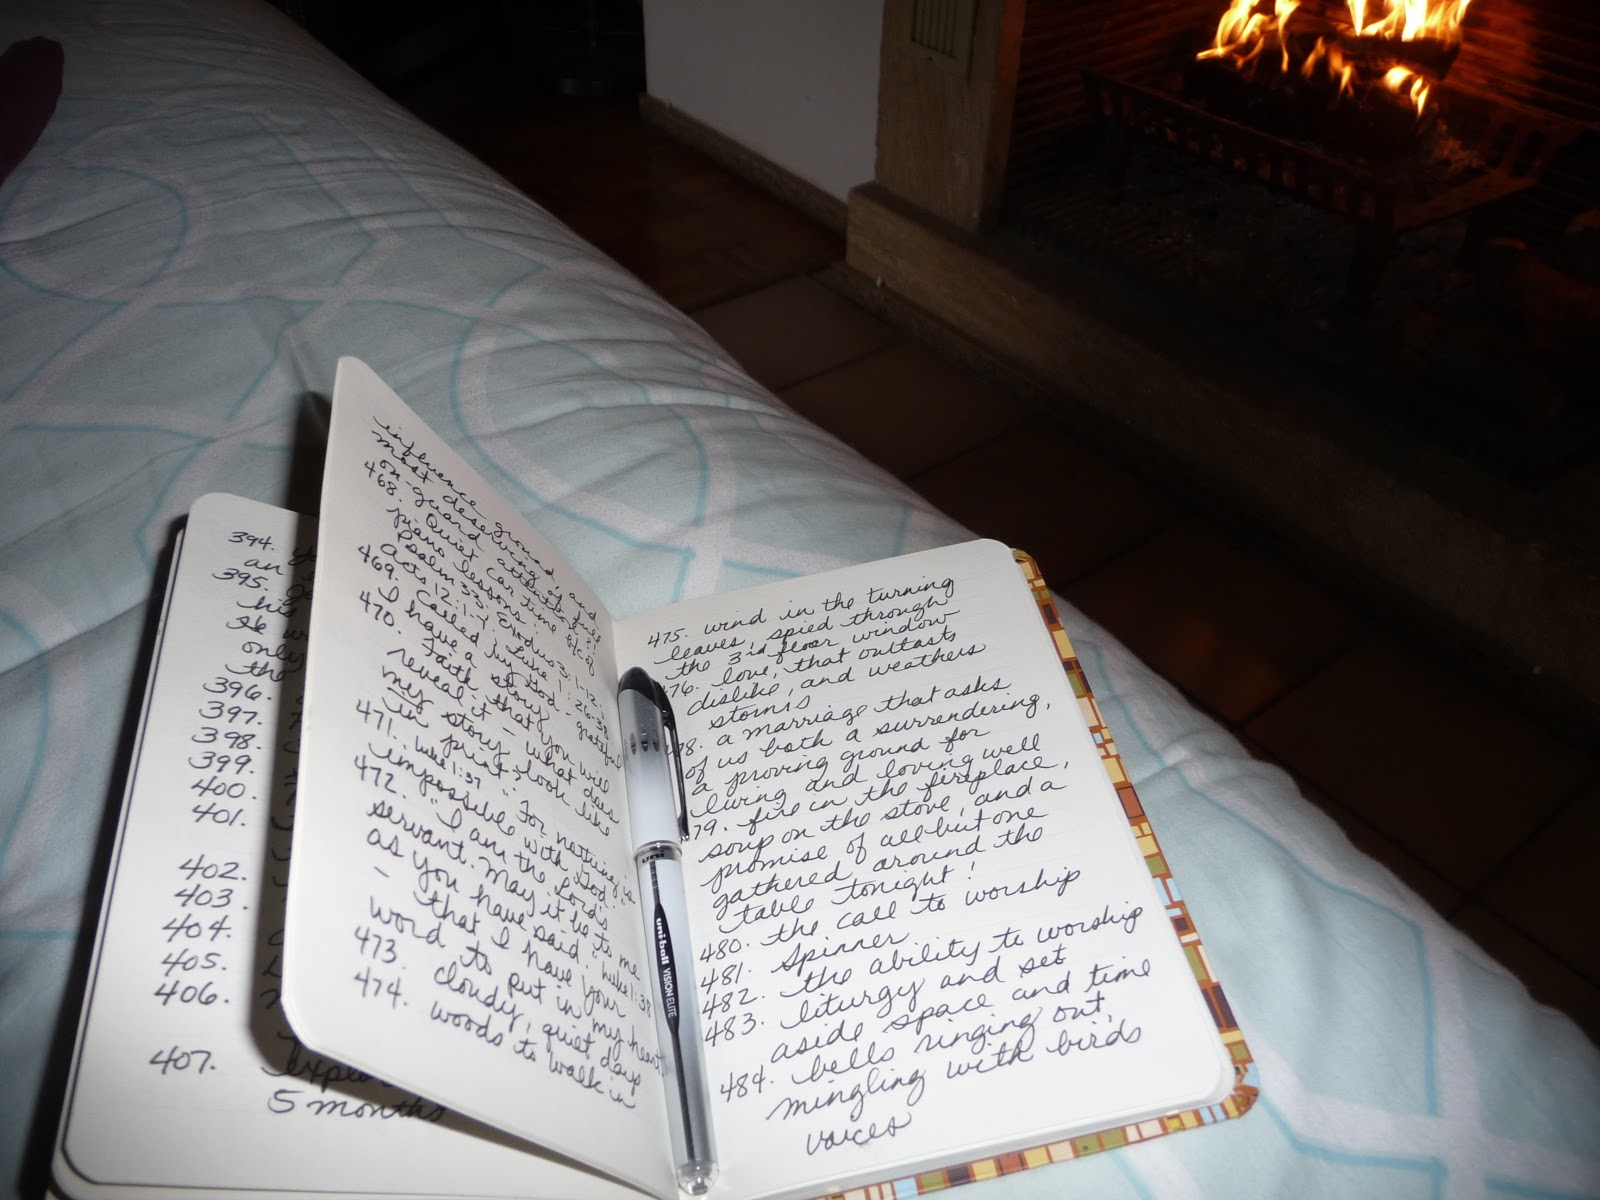 394.
an
395.
his
only
the
396.
397.
398.
399.
400.
401.
402.
403.
404.
405.
406.
407.
5 months
influence ground, and
most deserving of
on-guard attention
468. Quiet car time b/c of
piano lessons.
Psalm 33; Exodus 3:1-12;
Acts 12:1-7; Luke 1:26-38
469. Called by God - grateful
I have a story
470. Faith that you will
reveal it - what does
my story look like
in print?
471. Luke 1:37 "For nothing is
impossible with God."
472. "I am the Lord's
servant. May it be to me
as you have said." Luke 1:38
- that I have your
word to put in my heart
473. cloudy, quiet days
474. woods to walk in
475. wind in the turning
leaves, spied through
the 3rd floor window
76. love, that outlasts
dislike, and weathers
storms
78. a marriage that asks
of us both a surrendering,
a proving ground for
living and loving well
79. fire in the fireplace,
soup on the stove, and a
promise of all but one
gathered around the
table tonight!
480. the call to worship
481. Spinner
482. the ability to worship
483. liturgy and set
aside space and time
484. bells ringing out,
mingling with birds
voices
uni
uni-ball VISION ELITE